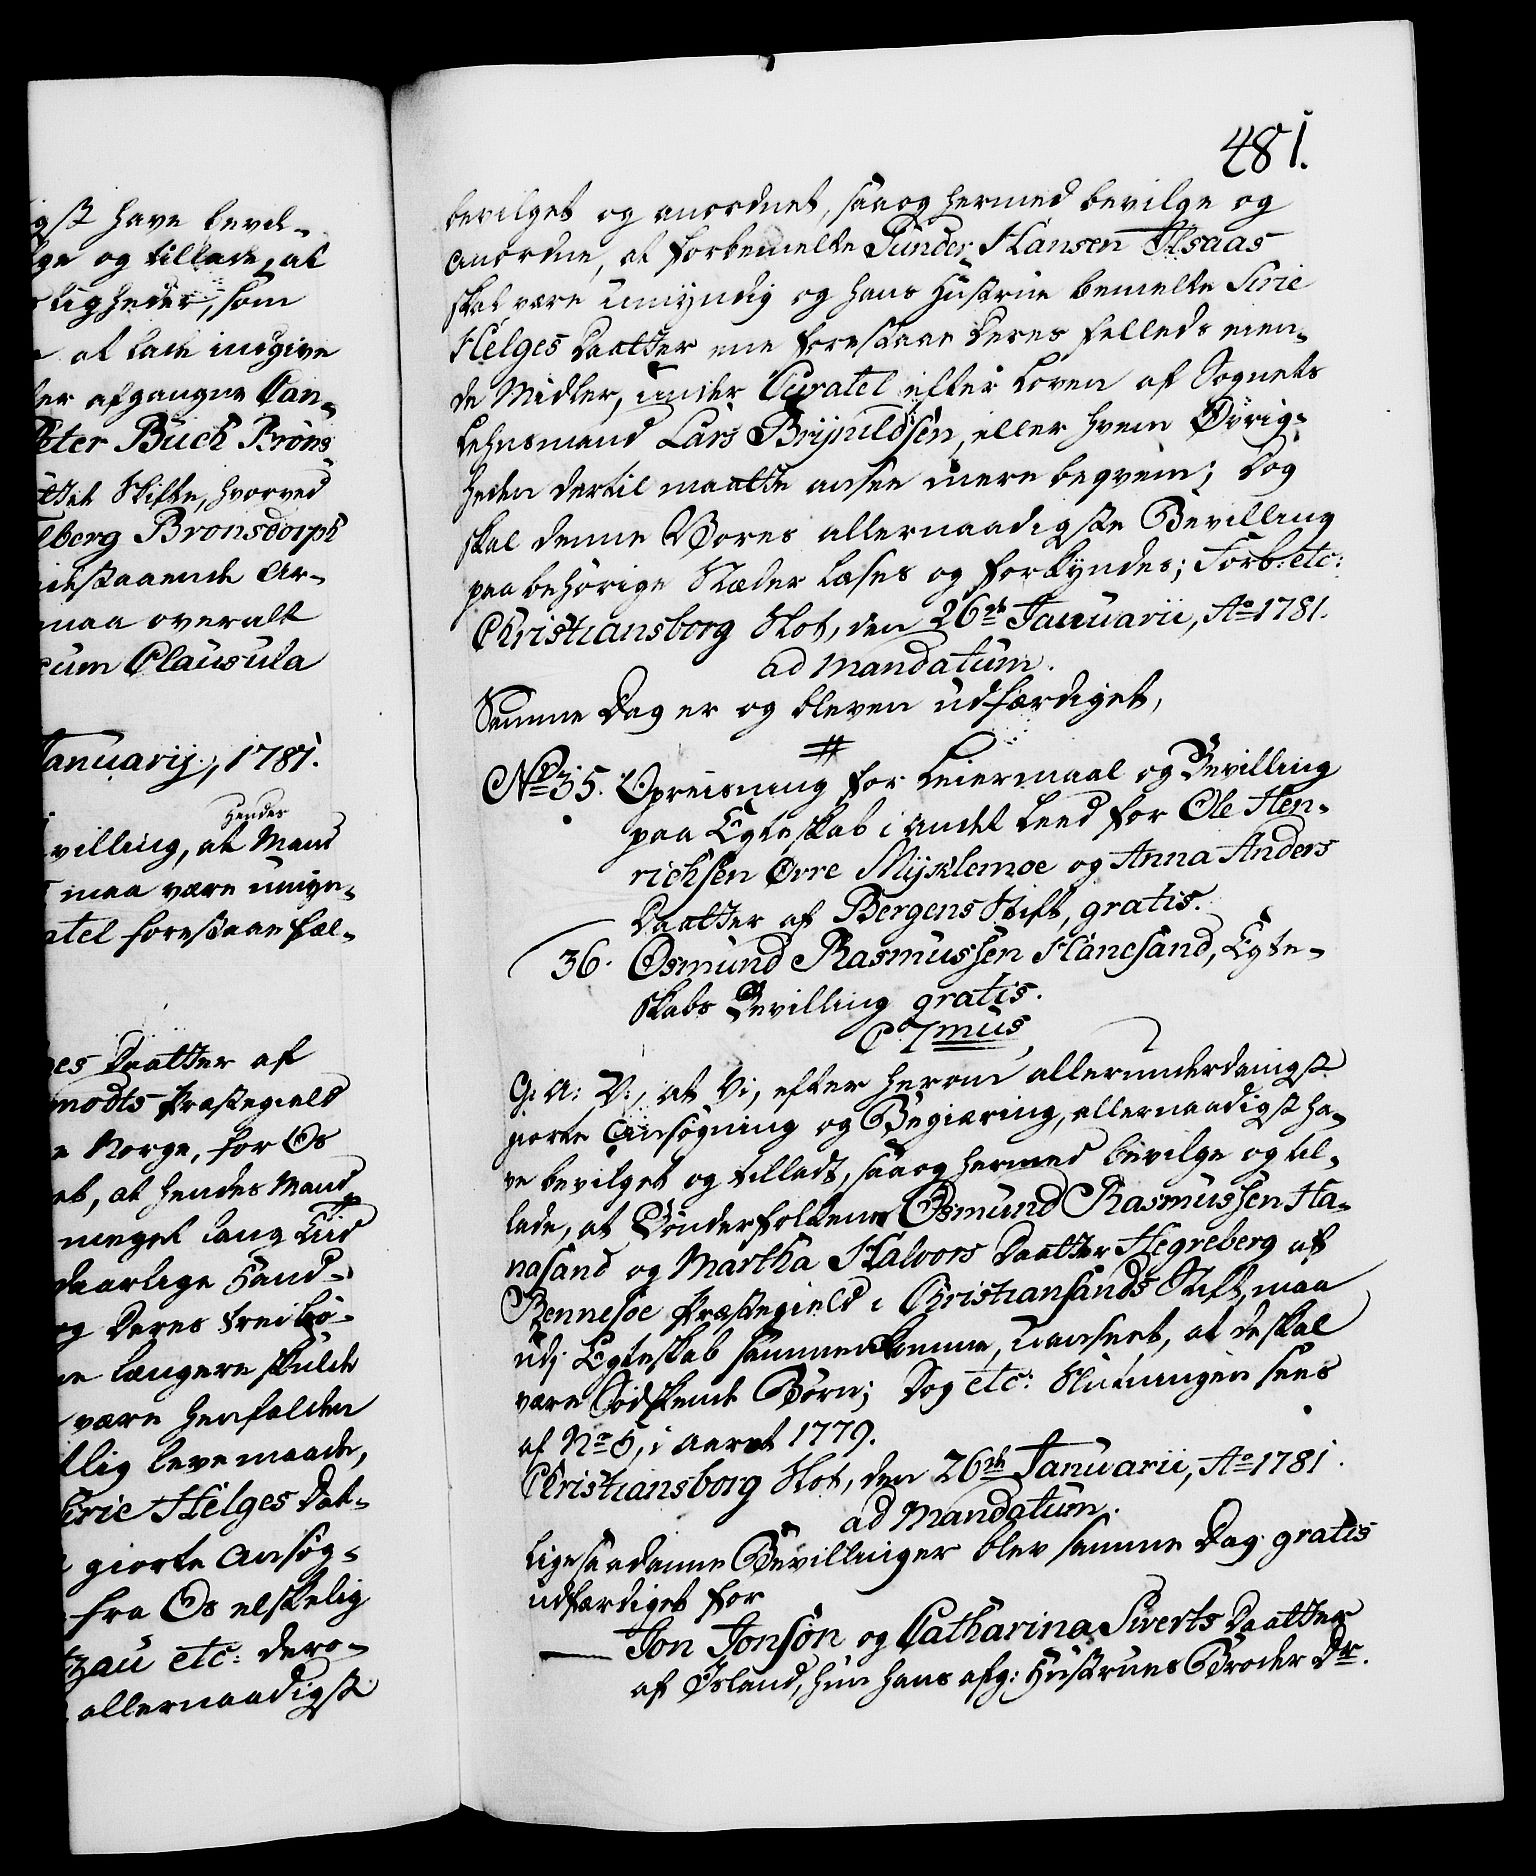 gst have bevil-
ge og tillade, at
ligheder, som
at lade indgive
der afgangne Can-
Peter Buch Brøns-
Skifte, hvorved
berg Bronsdorph
staaende Ar-
maa overalt
cum Clausula
Januarij, 1781.
hendes
villing, at Mand
maa være umyn-
atel forestaae fæl-
ges Daatter af
modts Præstegield
Norge, for Os
at hendes Mand
meget lang Tiid
daarlige Hand-
og Deres trei Bø-
længere skulde
være henfalden
lig levemaade,
Sirie Helges Dat-
giorte Ansøg-
fra Os elskelig
tzau etc: dero-
allernaadigst
481.
bevilget og anordnet, saa og hermed bevilge og
anordne, at forbemelte Gunder Hansen Alsaas
skal være umyndig og hans Hustrue bemelte Sirie
Helges Daatter ene forestaae deres fælleds eien-
de Midler, under Curatel efter Loven af Sognets
Lehnsmand Lars Brynildsen, eller hvem Øvrig-
heden dertil maatte ansee mere beqvem; Dog
skal denne Vores allernaadigste Bevilling
paa behørige Stæder læses og forkyndes; Forb: etc:
Christiansborg Slot, den 26de Januarii, Ao 1781.
ad Mandatum.
Samme Dag er og bleven udfærdiget,
No 35. Opreisning for Leiermaal og Bevilling
paa Egteskab i andet Leed for Ole Hen-
richsen Ørre Myklemoe og Anna Anders
Daatter af Bergens Stift, gratis.
36. Osmund Rasmussen Hanesand, Egte-
skabs Bevilling gratis.
C 7mus
G: A: V:, at Vi, efter herom allerunderdanigst
giorte Ansøgning og Begiæring, allernaadigst ha-
ve bevilget og tilladt, saa og hermed bevilge og til-
lade, at Bønderfolkene Osmund Rasmussen Ha-
nasand og Martha Halvors Daatter Hegreberg af
Rennesøe Præstegield i Christiansands Stift, maa
udj Egteskab sammenkomme, uanseet, at de skal
være Sødskende Børn; Dog etc: Slutningen sees
af No 6, i Aaret 1779.
Christiansborg Slot, den 26de Januarii, Ao 1781.
ad Mandatum.
Lige saadanne Bevillinger blev samme Dag gratis
udfærdiget for
Jon Jonsøn og Catharina Siverts Daatter
af Island, hun hans afg: Hustrues Broder Dr.